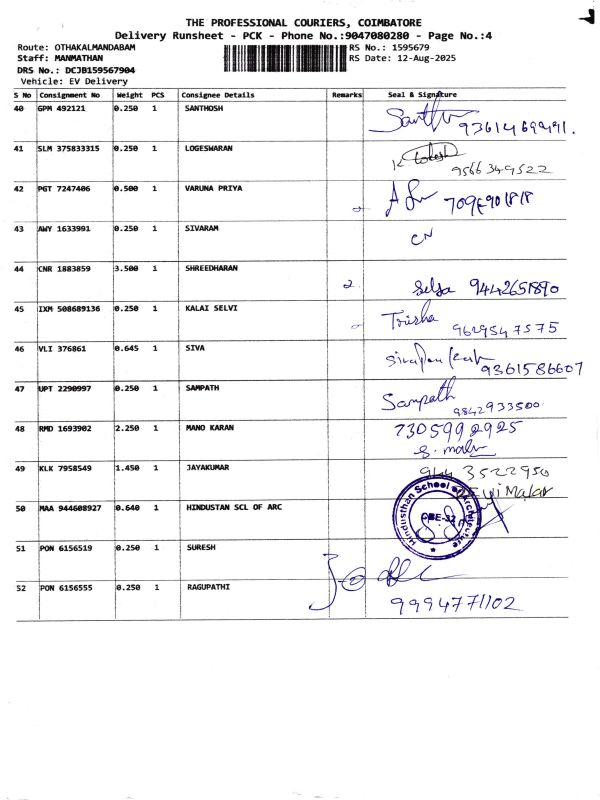 THE PROFESSIONAL COURIERS, COIMBATORE
Delivery Runsheet - PCK - Phone No.:9047080280 - Page No.:4
Route: OTHAKALMANDABAM RS No.: 1595679
Staff: MANMATHAN RS Date: 12-Aug-2025
DRS No.: DCJB159567904
Vehicle: EV Delivery
S No Consignment No Weight PCS Consignee Details Remarks Seal & Signature
40 GPM 492121 0.250 1 SANTHOSH
41 SLM 375833315 0.250 1 LOGESWARAN
9566349522
42 PGT 7247406 0.500 1 VARUNA PRIYA
43 AWY 1633991 0.250 1 SIVARAM
CN
44 CNR 1883859 3.500 1 SHREEDHARAN
2 Selja 9442651890
45 IXM 508689136 0.250 1 KALAI SELVI
Trisha
9629547575
46 VLI 376861 0.645 1 SIVA
9361586607
47 UPT 2290997 0.250 1 SAMPATH
Sampath
9842933500
48 RMD 1693902 2.250 1 MANO KARAN 7305992925
49 KLK 7958549 1.450 1 JAYAKUMAR
50 MAA 944608927 0.640 1 HINDUSTAN SCL OF ARC
Hindusthan School of Architecture
CBE-32
51 PON 6156519 0.250 1 SURESH
52 PON 6156555 0.250 1 RAGUPATHI
9994771102